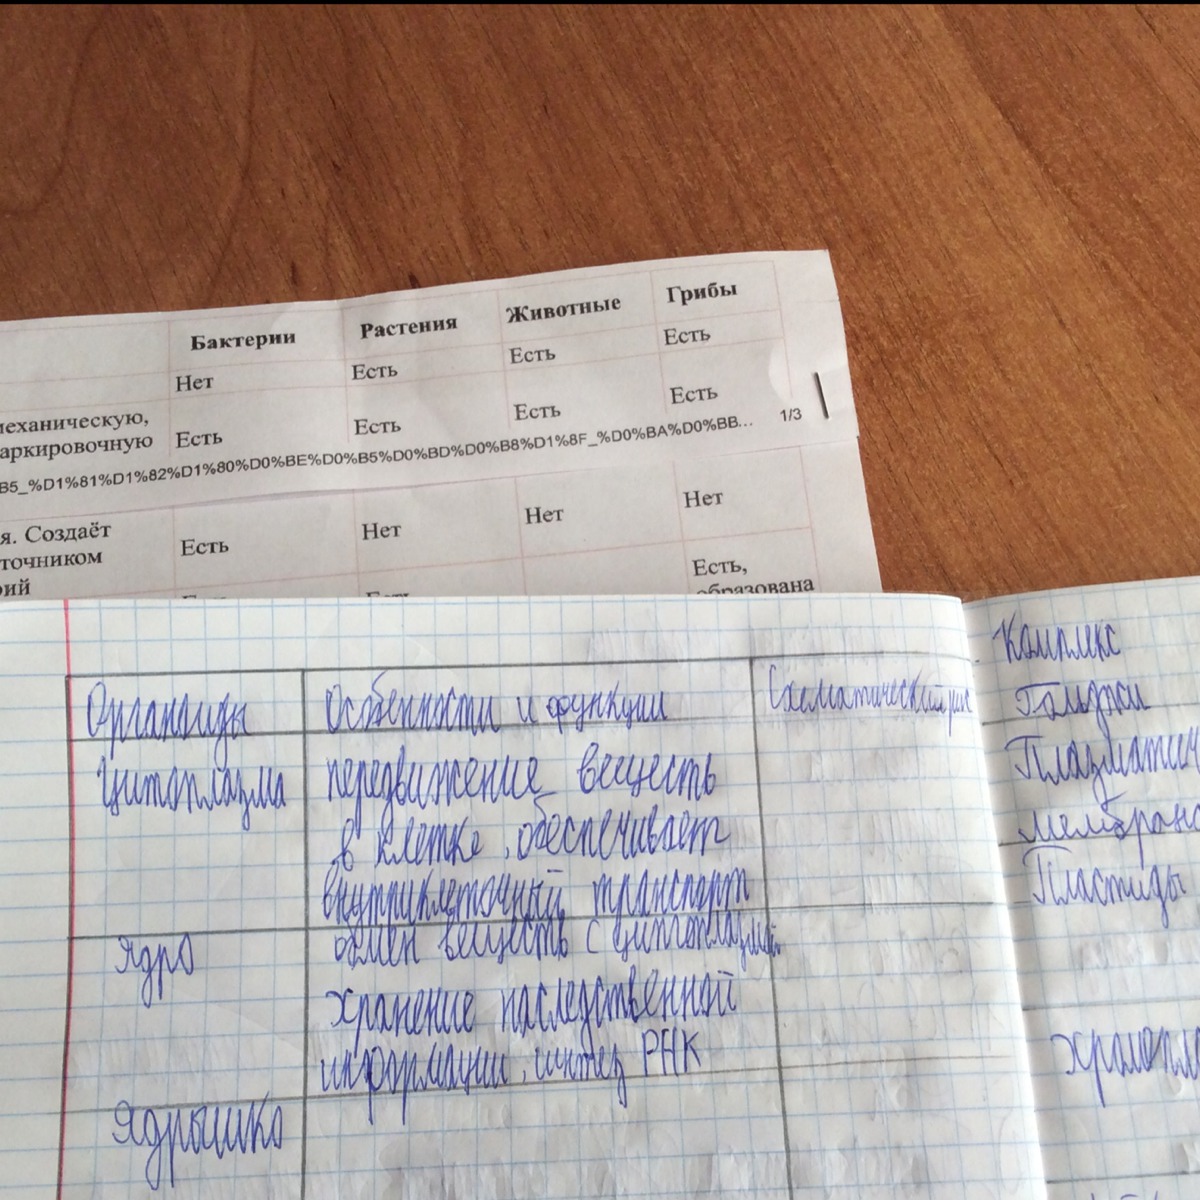 Бактерии Растения Животные Грибы
Нет Есть Есть Есть
механическую,
аркировочную Есть Есть Есть Есть
B5_%D1%81%D1%82%D1%80%D0%BE%D0%B5%D0%BD%D0%B8%D1%8F_%D0%BA%D0%BB... 1/3
я. Создаёт
точником Есть Нет Нет Нет
рий
Есть Есть Есть,
образована
Органоиды Особенности и функции Схематический рис
Цитоплазма передвижение веществ
в клетке, обеспечивает
внутриклеточный транспорт
Ядро обмен веществ с цитоплазмой
хранение наследственной
информации, синтез РНК
Ядрышко
Комплекс
Гольджи
Плазматич
мембрана
Пластиды
хромопла